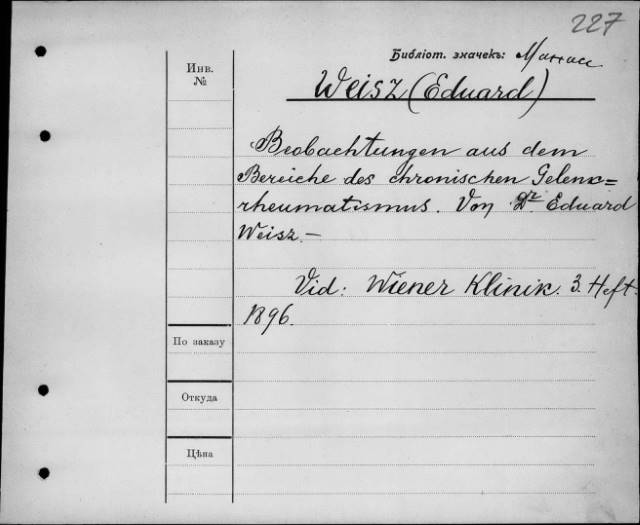 227
Библіот. значекъ: Манасс
Инв.
№
Weisz (Eduard)
Beobachtungen aus dem
Bereiche des chronischen Gelenk=
rheumatismus. Von Dr. Eduard
Weisz.—
Vid: Wiener Klinik. 3. Heft
1896.
По заказу
Откуда
Цѣна